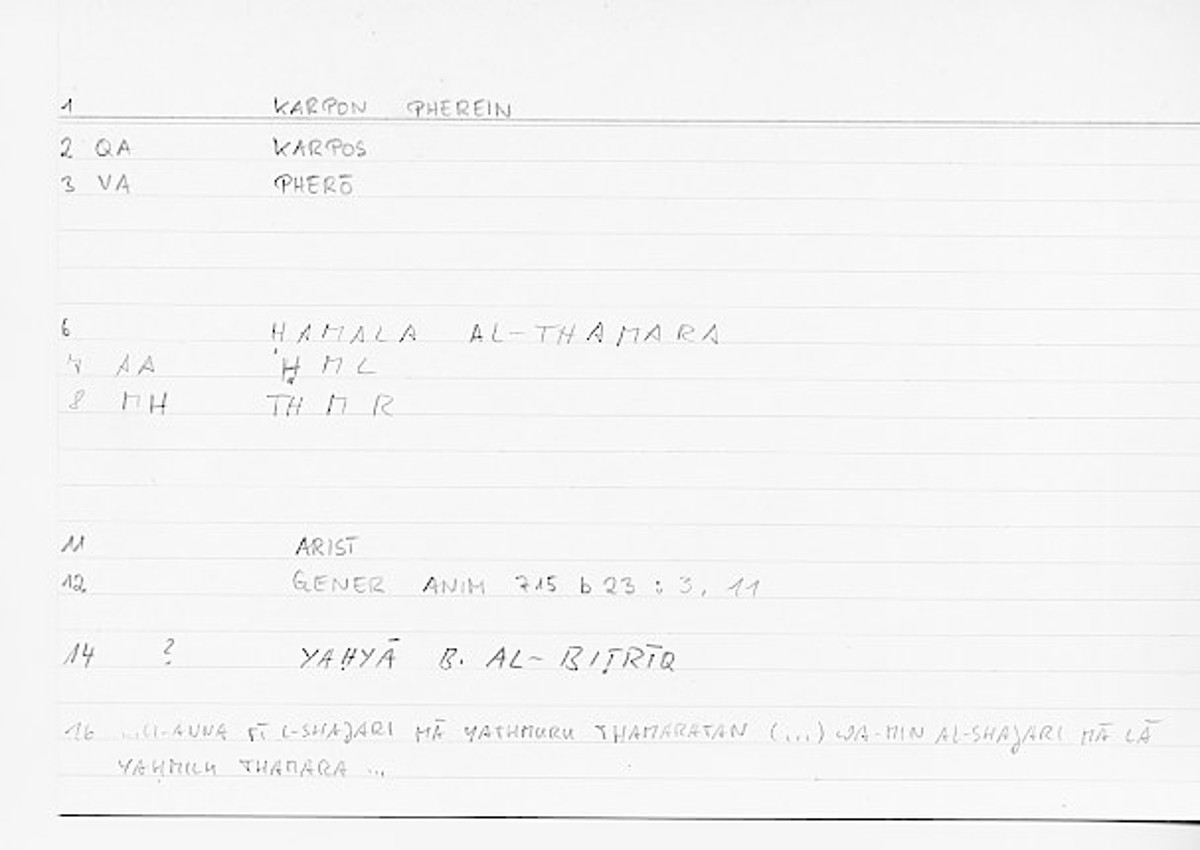 1 KARPON PHEREIN
2 QA KARPOS
3 VA PHERŌ
6 HAMALA AL-THAMARA
7 AA ḤML
8 MH THMR
11 ARIST
12 GENER ANIM 715 b 23 : 3, 11
14 ? YAḤYĀ B. AL-BIṬRĪQ
16 ...LI-ANNA FĪ L-SHAJARI MĀ YATHMURU THAMARATAN (...) WA-MIN AL-SHAJARI MĀ LĀ
YAḤMILU THAMARA ...